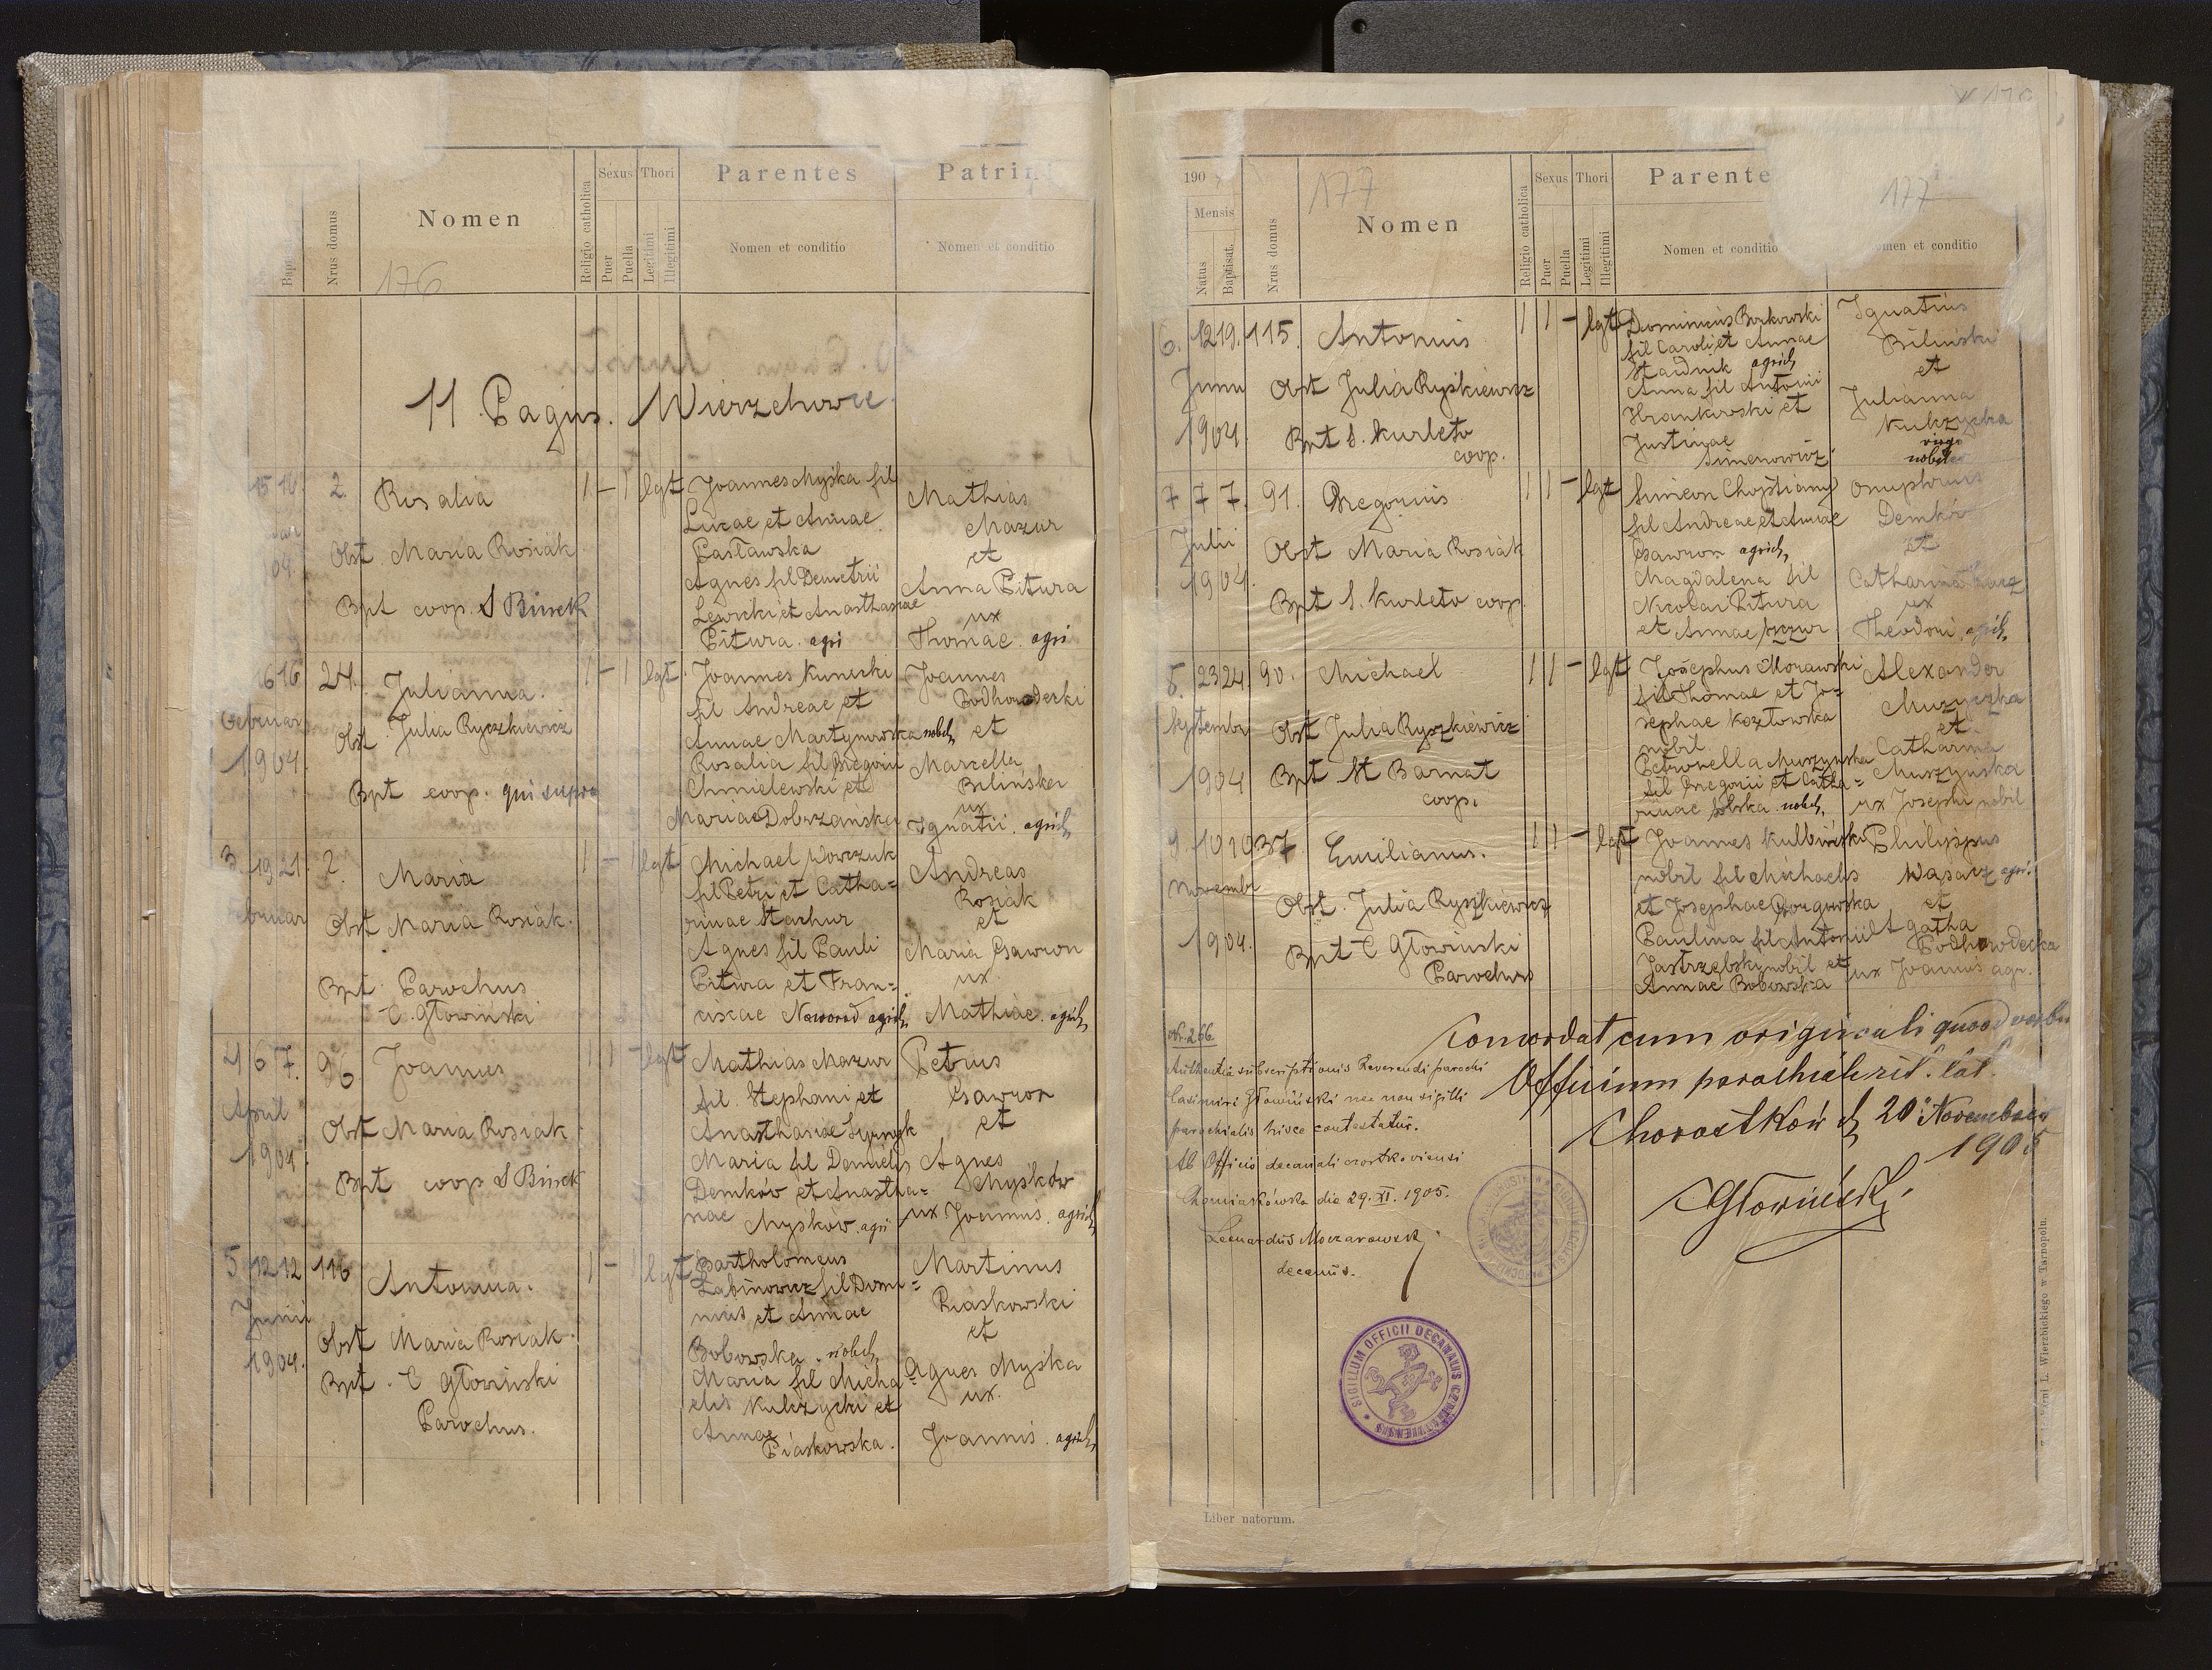 Bap
Nrus domus
Nomen
176
Religio catholica
Sexus
Puer
Puella
Thori
Legitimi
Illegitimi
Parentes
Nomen et conditio
Patrini
Nomen et conditio
11. Pagus. Wierzchowce.
15 16. 2. Rosalia 1 – 1 lgt
04.
Obst Maria Rosiak
Bpt coop. S Binek
Joannes Myśka fil
Lucae et Annae
Pasławska
Agnes fil Demetrii
Lewicki et Anasthasiae
Pitura. agri
Mathias
Mazur
et
Anna Pitura
ux
Thomae. agri
16 16 24. Julianna. 1 – 1 lgt.
Februar
1904.
Obst Julia Ryszkiewicz
Bpt coop. qui supra
Joannes Kunicki
fil Andreae et
Annae Martynowska nobil,
Rosalia fil Gregorii
Chmielewski et
Mariae Dobrzańska
Joannes
Podhorodecki
et
Marcella
Bilinska
ux
Ignatii. agric,
3. 19 21. 2. Maria 1 – 1 lgt
Februar
Obst Maria Rosiak.
Bpt. Parochus
C. Głowiński
Michael Wowczuk
fil Petri et Catha=
rinae Stachur
Agnes fil Pauli
Pitura et Fran=
ciscae Naworod agric,
Andreas
Rosiak
et
Maria Gawron
ux
Mathiae. agric,
4 6 7. 96 Joannes 1 1 – lgt
April
1904
Obst Maria Rosiak
Bpt coop S Binek
Mathias Mazur
fil. Stephani et
Anasthasiae
Maria fil Danielis
Demków et Anastha=
siae Myśków. agri
Petrus
Gawron
et
Agnes
Myśków
ux Joannis. agric,
5 12 12 116 Antonina. 1 – 1 lgt
Junii
1904.
Obst Maria Rosiak.
Bpt. C Głowiński
Parochus.
Bartholomeus
Łabinowicz fil Domi=
nicis et Annae
Bobowska. nobil,
Maria fil Micha=
elis Kulczycki et
Annae
Piaskowska.
Martinus
Piaskowski
et
Agnes Myśka
ux.
Joannis. agric,
190
177
177
Mensis
Natus
Baptisat.
Nrus domus
Nomen
Religio catholica
Sexus
Puer
Puella
Thori
Legitimi
Illegitimi
Parente
Nomen et conditio
omen et conditio
6. 12 19. 115. Antonius 1 1 – lgt
Junii
1904.
Obst Julia Ryśkiewicz
Bpt S. Kurleto
coop.
Dominicus Borkowski
fil Caroli et Annae
Stadnik agric,
Anna fil Antonii
Hrankowski et
Justinae
Simenowicz
Ignatius
Biliński
et
Julianna
Kulczycka
virgo
nobiles
7 7 7. 91. Gregorius 1 1 – lgt
Julii
1904.
Obst Maria Rosiak
Bpt S. Kurleto coop.
Simeon
fil Andreae et Annae
Gawron agric,
Magdalena fil
Nicolai Pitura
et Annae Mazur
Onuphrius
Demków
et
Catharina
ux
Theodori, agric,
8. 23 24. 90. Michael 1 1 – lgt
Septembr
1904
Obst Julia Ryszkiewicz
Bpt St Barnat
coop.
Josephus Morawski
fil Thomae et Jo=
sephae Kozłowska
nobil.
Petronella Muszyńska
fil Gregorii et Catha=
rinae nobil,
Alexander
Muzyczka
et
Catharina
Muszyńska
ux Josephi nobil
9. 10 10 37 Emilianus. 1 1 – lgt
Novembr
1904.
Obst. Julia Ryszkiewicz
Bpt C Głowiński
Parochus
Joannes Kulbiński
nobil fil Michaelis
et Josephae
Paulina fil Antonii
Jastrzębski nobil et
Annae Bobowska
Philippus
Wąsacz agri.
et
Agatha
Podhorodecka
ux Joannis agr.
Concordat cum originali quoad verbum
Officium parochiale rit. lat.
Chorostków d, 20. Novembris
1905
CGłowiński
Nr. 266
Authentia subscriptionis Reverendi parochi
Casimiri Głowiński nec non sigilli
parochialis hisce contestatur.
Ab Officio decanali czortkoviensi
Chomiakówka die 29. XI. 1905.
Leonardus Moczarowski
decanus.
SIGILLUM OFFICII DECANALIS CZORTKOVIENSIS
Liber natorum.
L. Wierzbickiego w Tarnopolu.